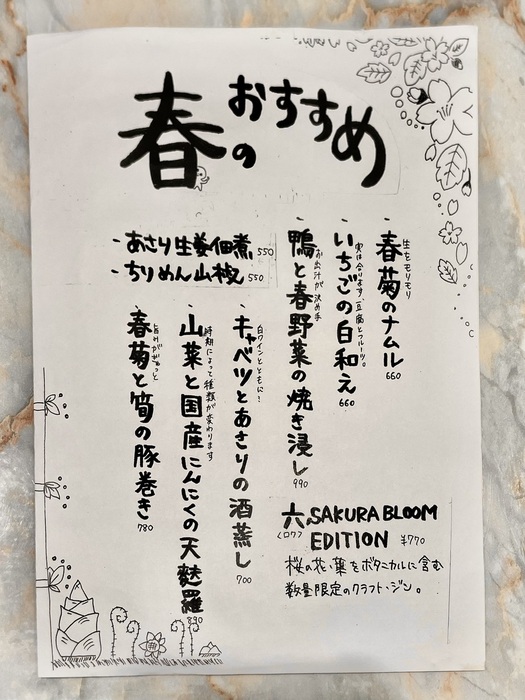 春のおすすめ
春菊のナムル 660
生をモリモリ
いちごの白和え 660
実は合います、豆腐とフルーツ。
鴨と春野菜の焼き浸し 990
お出汁が決め手
・あさり生姜佃煮 550
・ちりめん山椒 550
キャベツとあさりの酒蒸し 700
白ワインとともに!
山菜と国産にんにくの天麩羅 890
時期によって種類が変わります
春菊と筍の豚巻き 780
六 SAKURA BLOOM
〈ロク〉 EDITION ¥770
桜の花、葉をボタニカルに含む
数量限定のクラフト・ジン。